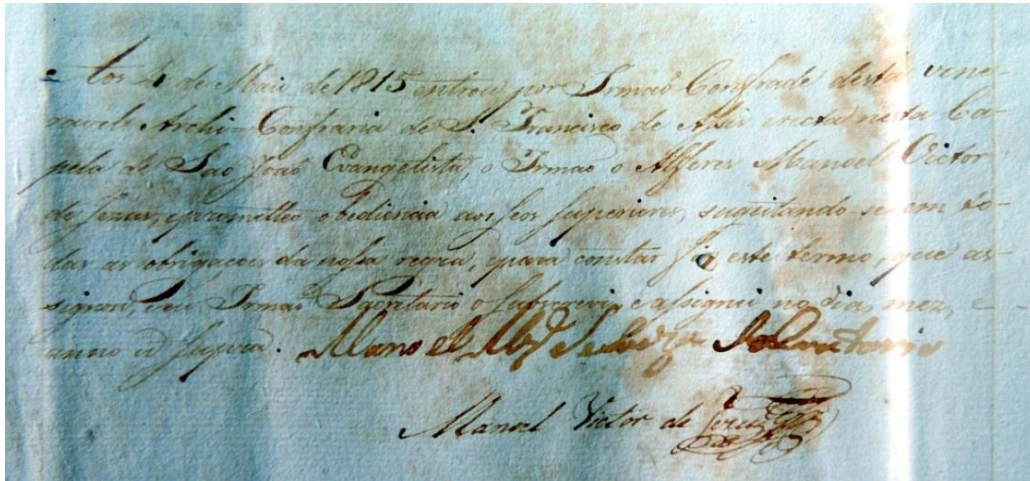 Aos 4 de Maio de 1815 entrou por Irmaõ Confrade desta vene-
ravel Archi-Confraria de S. Francisco de Assis erecta nesta Ca-
pela de Saõ Joaõ Evangelista, o Irmaõ o Alferes Manoel Victor
de Jezus, eprometteo obediencia aos seos superiores, sugeitando-se em to-
das as obrigaçoes da nossa regra, epara constar fiz este termo, que as-
signará, eeu Irmaõ Secretario o subscrevi, e assignei no dia, mez, e
anno ut supra. Manoel
Manoel Victor de Jezus